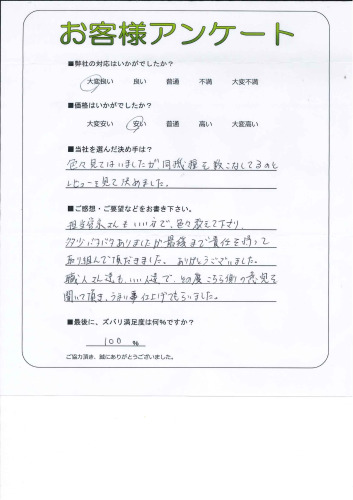 お客様アンケート
■弊社の対応はいかがでしたか？
大変良い 良い 普通 不満 大変不満
■価格はいかがでしたか？
大変安い 安い 普通 高い 大変高い
■当社を選んだ決め手は？
色々見てはいましたが何機種も数こなしてるのと
レビューを見て決めました。
■ご感想・ご要望などをお書き下さい。
担当者さんもいい方で、色々教えて下さり、
タツバタバタありましたが最後まで責任を持って
取り組んで頂だきました。ありがとうございました。
職人さん達も、いい人達で、その度こちら側の意見を
聞いて頂き、うまい事仕上げてもらいました。
■最後に、ズバリ満足度は何%ですか？
100 %
ご協力頂き、誠にありがとうございました。